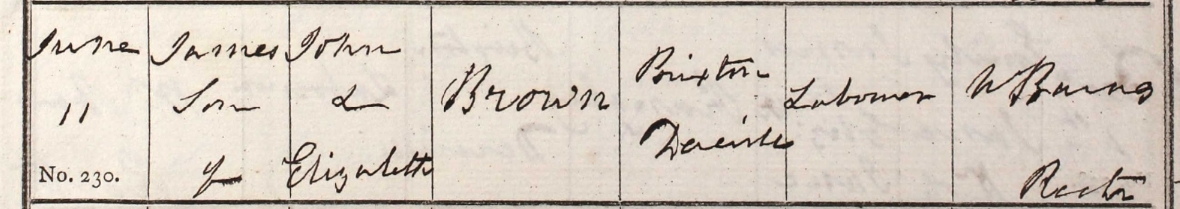 June
11
No. 230.
James
Son
of
John
&
Elizabeth
Brown
Brixton
Deverill
Labourer
W Barnes
Rector